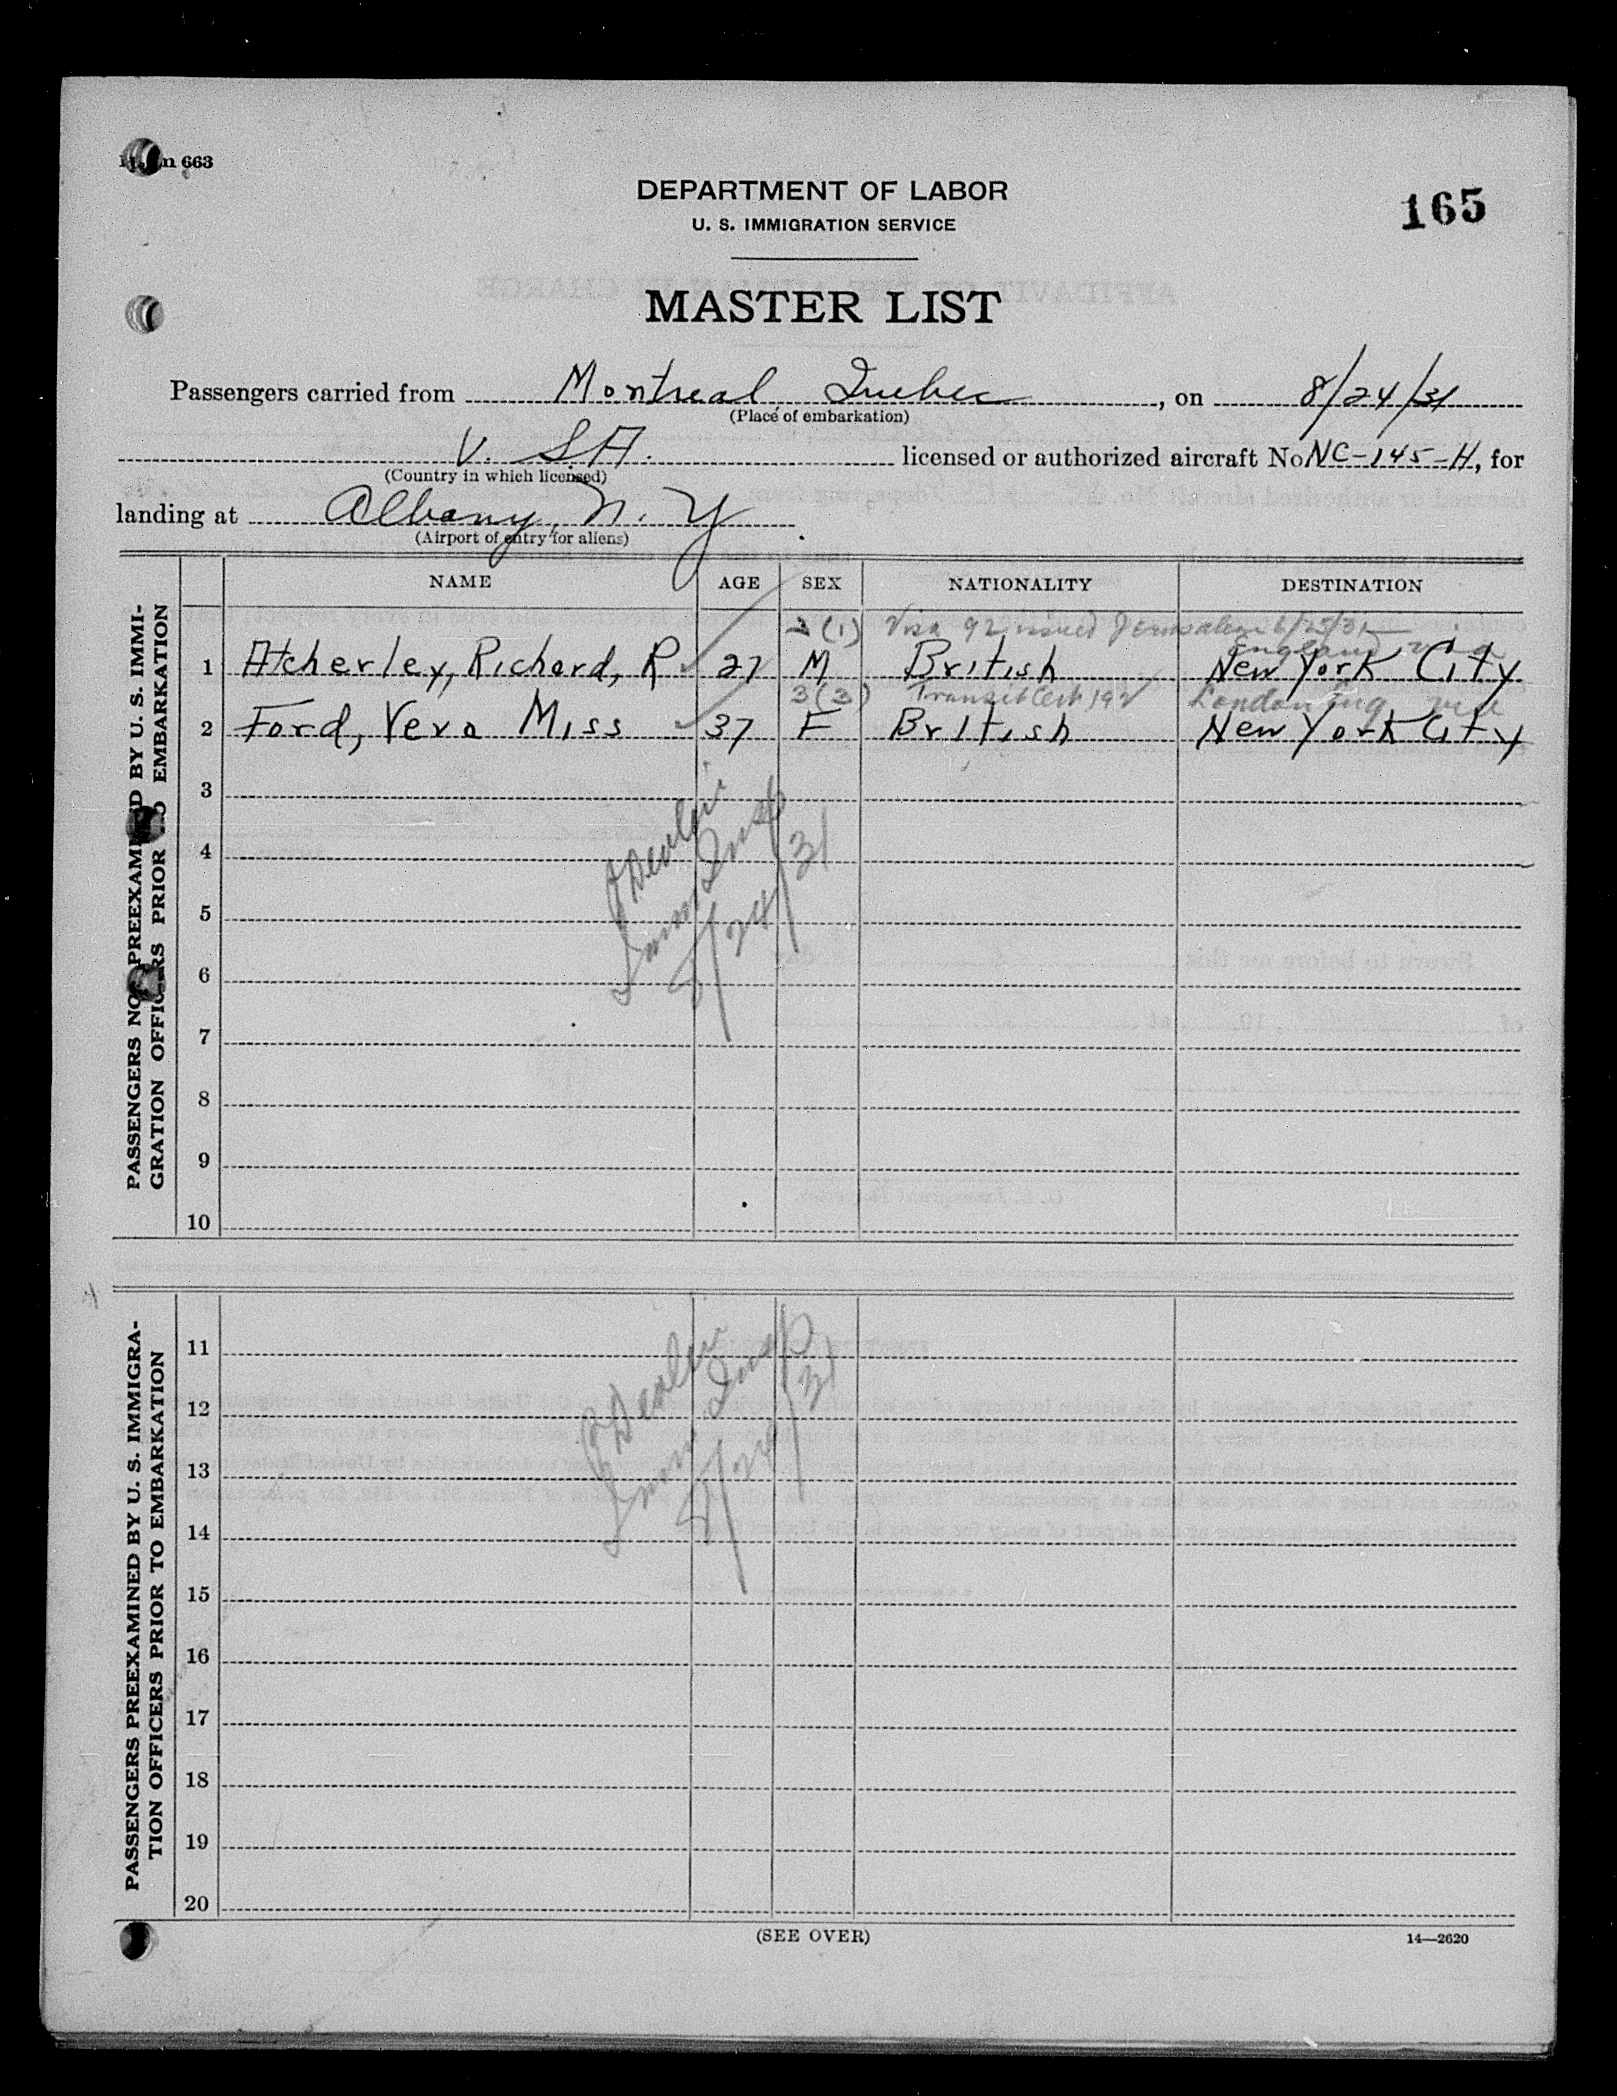 663
165
DEPARTMENT OF LABOR
U. S. IMMIGRATION SERVICE
MASTER LIST
Passengers carried from Montreal Quebec, on 8/24/31
(Place of embarkation)
U. S. A. licensed or authorized aircraft No. NC-145-H, for
(Country in which licensed)
landing at Albany, N. Y
(Airport of entry for aliens)
NAME AGE SEX NATIONALITY DESTINATION
PASSENGERS NOT PREEXAMINED BY U. S. IMMI-
GRATION OFFICERS PRIOR TO EMBARKATION
(1) Visa issued Jerusalem 6/25/31
England
1 Atcherley, Richard, R 27 M British New York City
3(3) Transit Cert London Eng
2 Ford, Vera Miss 37 F British New York City
3
4
5
6
7
8
9
10
Devlin
Imm Insp
8/24/31
PASSENGERS PREEXAMINED BY U. S. IMMIGRA-
TION OFFICERS PRIOR TO EMBARKATION
11
12
13
14
15
16
17
18
19
20
Devlin
Imm Insp
8/24/31
(SEE OVER)
14—2620